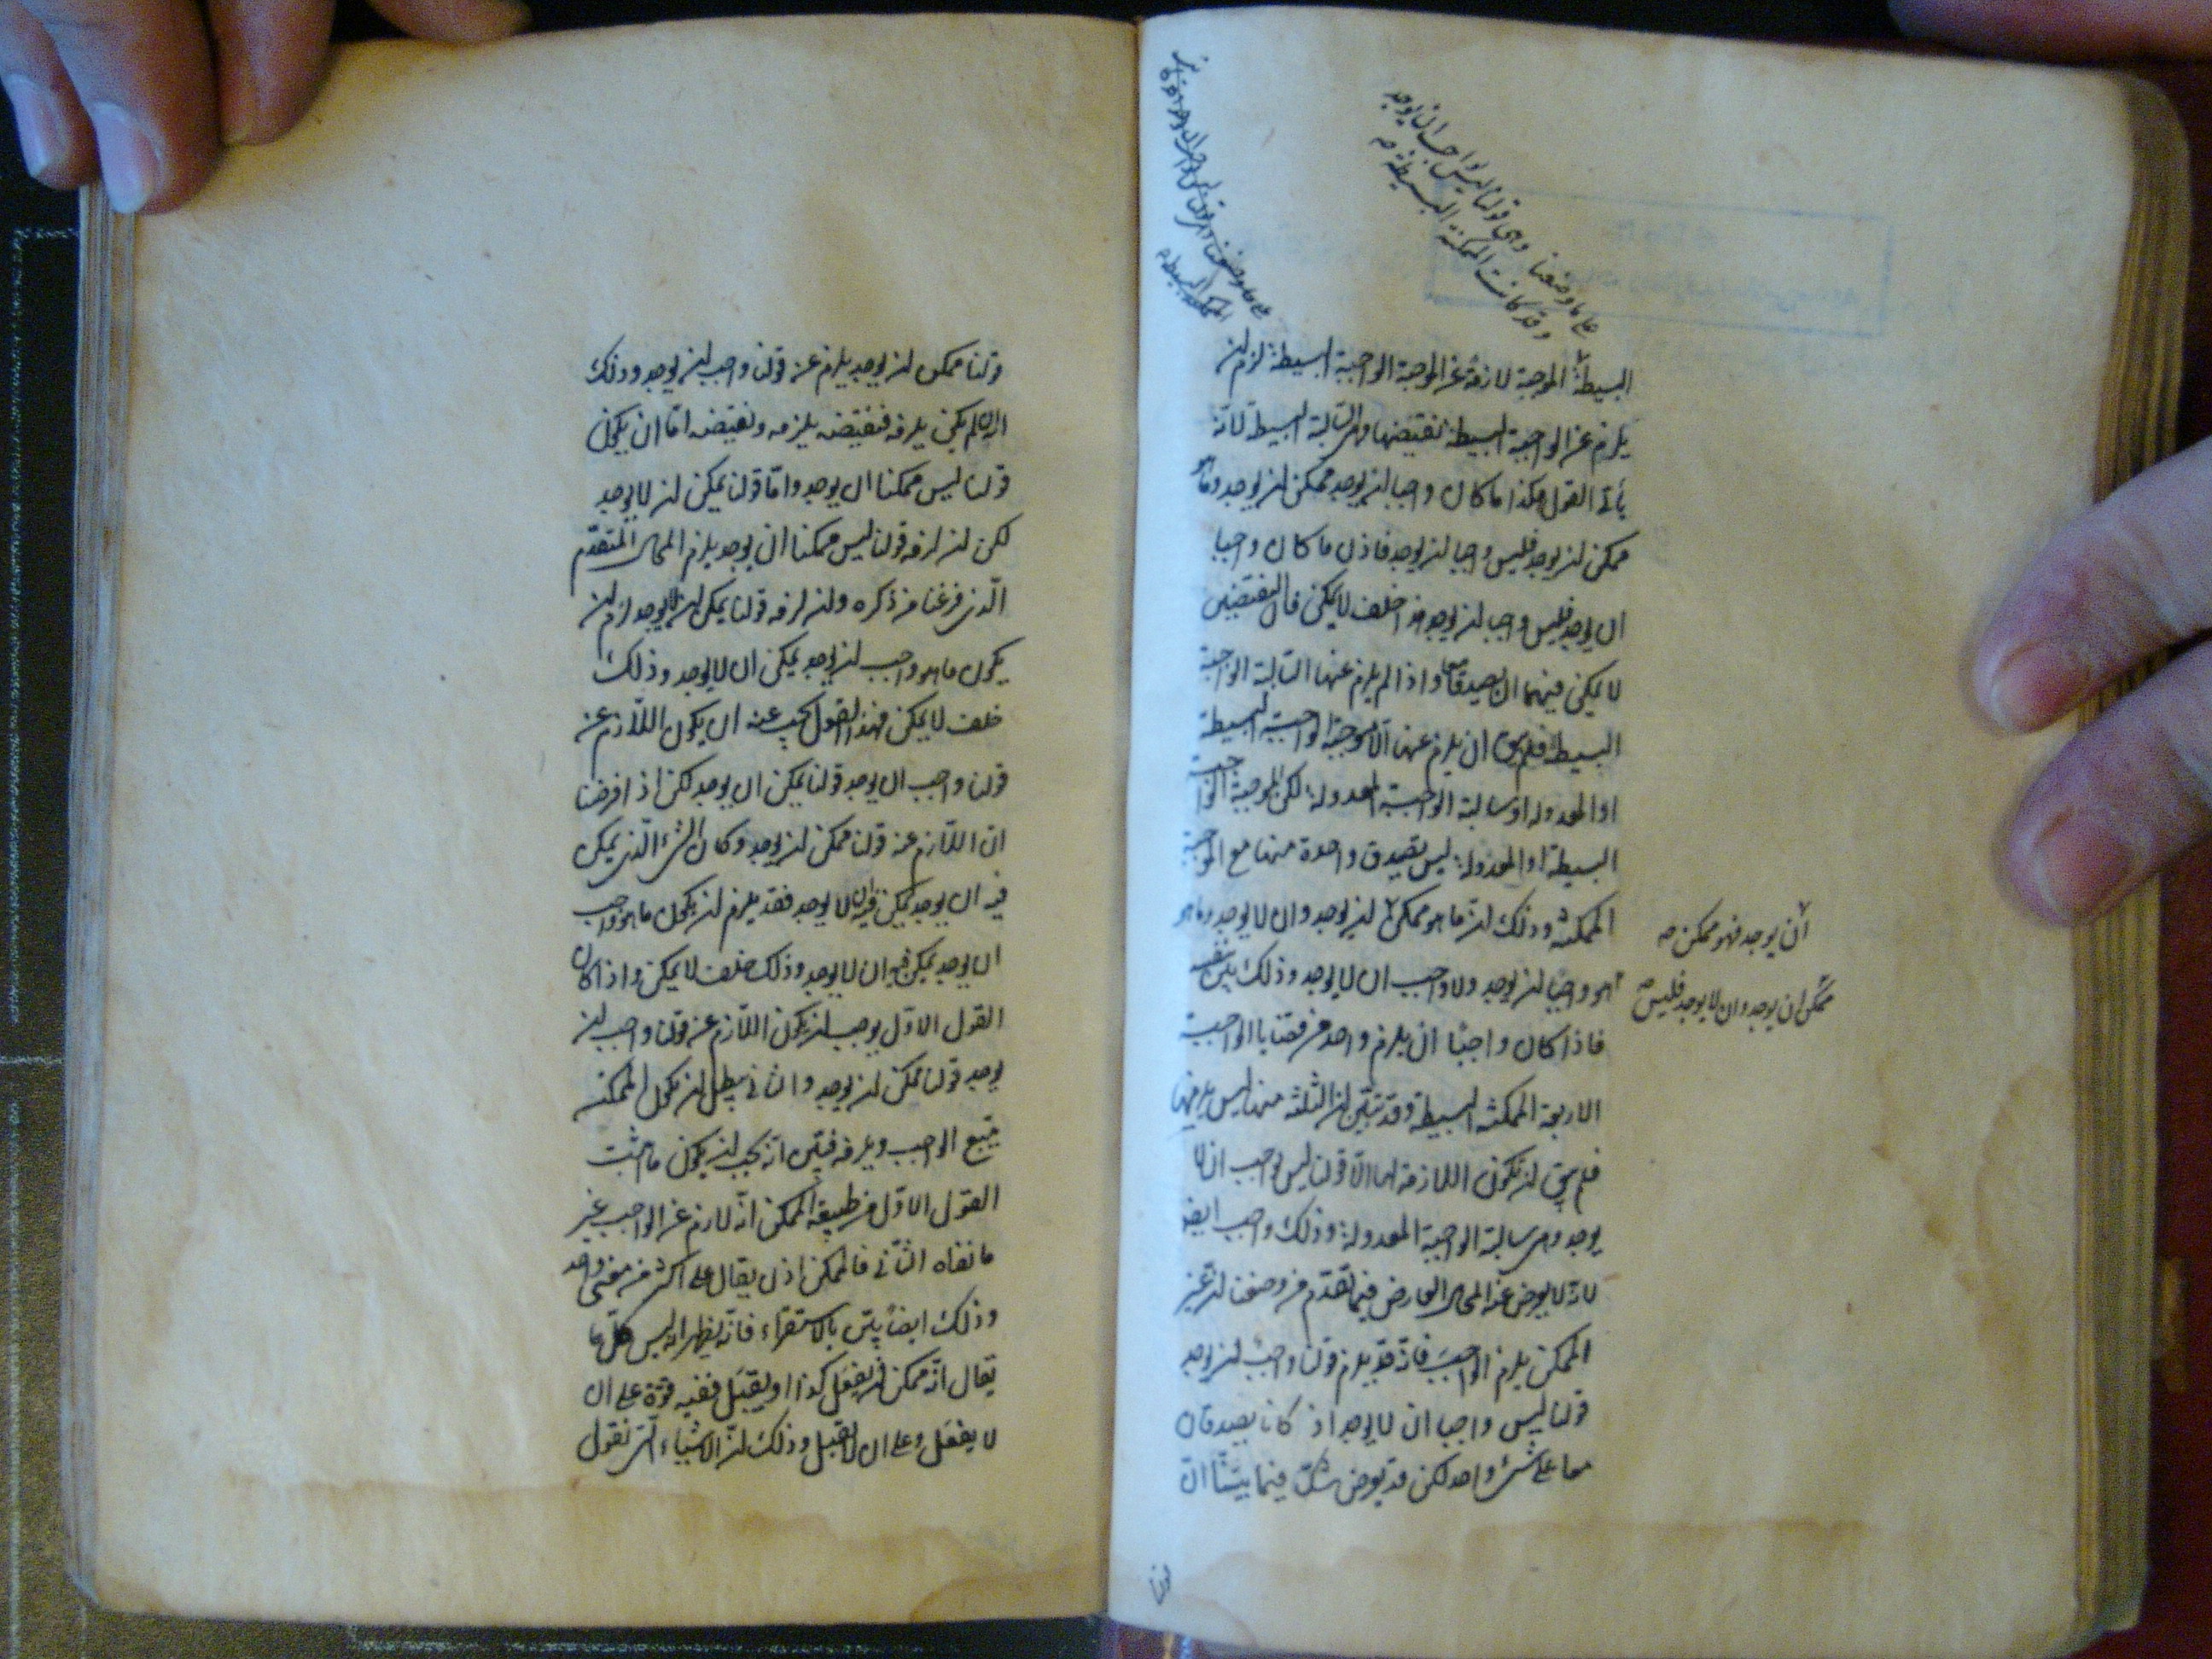 على ما وضعنا وهي قولنا ليس بواجب ان يوجد
وقد كانت الممكنة البسيطة
البسيطة الموجبة لازمة عن الموجبة الواجبة البسيطة لزم ان
يلزم عن الواجبة البسيطة نقيضها وهي السالبة البسيطة لانه
يأتي القول هكذا ما كان واجبا ان يوجد ممكن ان يوجد وما هو
ممكن ان يوجد فليس واجبا ان يوجد فاذن ما كان واجبا
ان يوجد فليس واجبا ان يوجد هذا خلف لا يمكن فان النقيضين
لا يمكن فيهما ان يصدقا معا واذا لم يلزم عنها السالبة الواجبة
البسيطة فلم يبق ان يلزم عنها الا الموجبة الواجبة البسيطة
او المعدولة او سالبة الواجبة المعدولة لكن الموجبة الواجبة
البسيطة او المعدولة ليس يصدق واحدة منها مع الموجبة
الممكنة وذلك ان ما هو ممكن ان يوجد وان لا يوجد وما هو
ان يوجد فهو ممكن
هو واجبا ان يوجد ولا واجب ان لا يوجد وذلك بين بنفسه
ممكن ان يوجد وان لا يوجد فليس
فاذا كان واجبا ان يلزم واحد من قضايا الواجبة
الاربعة الممكنة البسيطة وقد تبين ان الثلثة منها ليس يلزمها
فلم يبق ان تكون اللازمة لها الا قولنا ليس بواجب ان لا
يوجد وهي سالبة الواجبة المعدولة وذلك واجب ايضا
لانه لا يعرض عنه المحال العارض فيما تقدم من وضعنا ان عن
الممكن يلزم الواجب فانه قد يلزم قولنا واجب ان يوجد
قولنا ليس واجبا ان لا يوجد اذ كانا يصدقان
معا على شيء واحد لكن قد يعرض شك فيما بينا ان
قولنا
قولنا ممكن ان يوجد يلزم عن قولنا واجب ان يوجد وذلك
انه ان لم يكن يلزمه فنقيضه يلزمه ونقيضه اما ان يكون
قولنا ليس ممكنا ان يوجد واما قولنا يمكن ان لا يوجد
لكن ان لزمه قولنا ليس ممكنا ان يوجد يلزم المحال المتقدم
الذي فرغنا من ذكره وان لزمه قولنا يمكن ان لا يوجد لزم ان
يكون ما هو واجب ان يوجد يمكن ان لا يوجد وذلك
خلف لا يمكن فهذا القول يجب عنه ان يكون اللازم عن
قولنا واجب ان يوجد قولنا يمكن ان يوجد لكن اذا فرضنا
ان اللازم عنه قولنا ممكن ان يوجد وكان الشيء الذي يمكن
فيه ان يوجد يمكن فيه ان لا يوجد فقد يلزم ان يكون ما هو واجب
ان يوجد يمكن فيه ان لا يوجد وذلك خلف لا يمكن واذا كان
القول الاول يوجب ان يكون اللازم عن قولنا واجب ان
يوجد قولنا ممكن ان يوجد والثاني يبطل ان يكون الممكن
يتبع الواجب ويلزمه فبين انه يجب ان يكون ما اثبت
القول الاول من طبيعة الممكن انه لازم عن الواجب غير
ما نفاه الثاني فالممكن اذن يقال على اكثر من معنى واحد
وذلك ايضا يبين بالاستقراء فانه يظهر انه ليس كل ما
يقال انه ممكن ان يفعل كذا او يقبل ففيه قوة على ان
لا يفعل وعلى ان لا يقبل وذلك ان الاشياء التي نقول